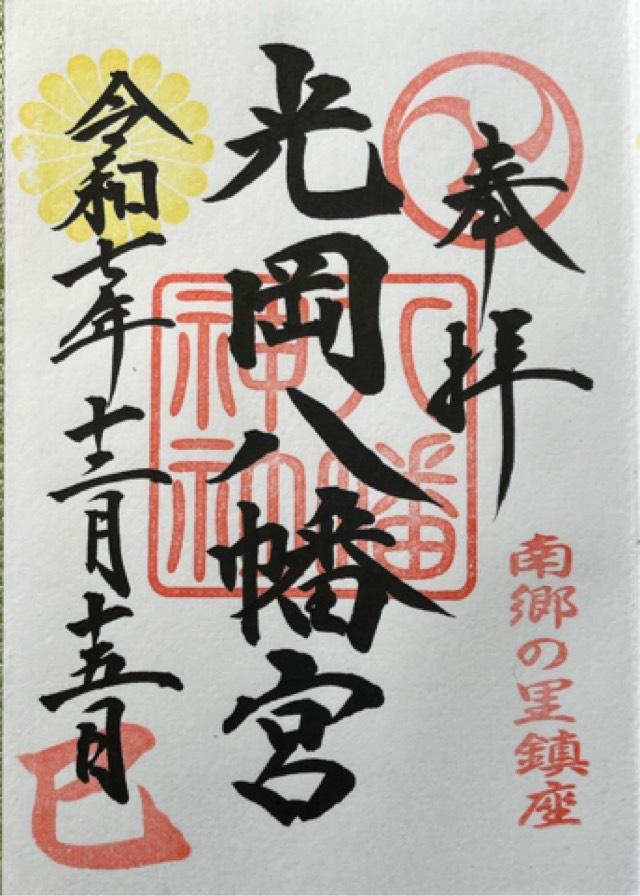 奉拝
南郷の里鎮座
光岡八幡宮
八幡神社
令和七年十二月十五日
巳